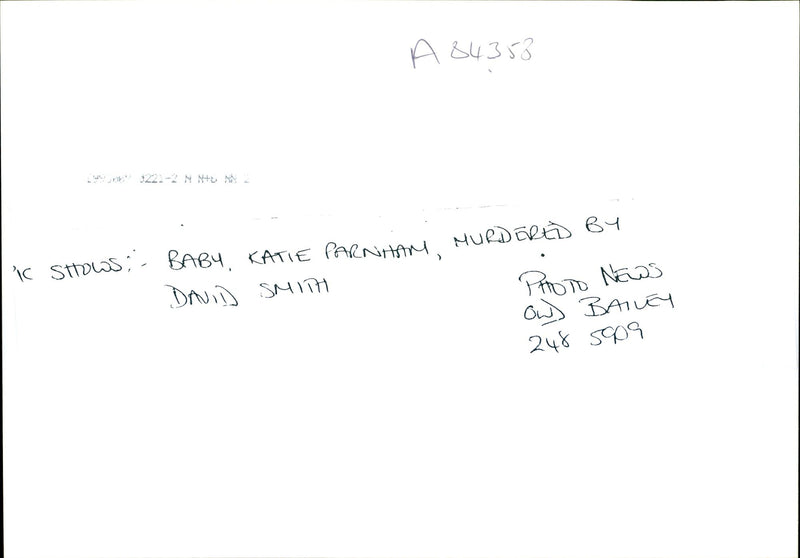 A 84353
'IC SHOWS:- BABY, KATIE PARNHAM, MURDERED BY
DAVID SMITH
PHOTO NEWS
OLD BAILEY
248 5909